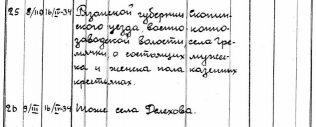 25 8/III 16/IV-34 Рязанской губернии Скопин-
ского уезда, военно конно-
заводской волости села Гре-
мячки о состоящих мужес-
ка и женска пола казенных
крестьянах.
26 9/III 16/IV-34 Тоже села Делехова.